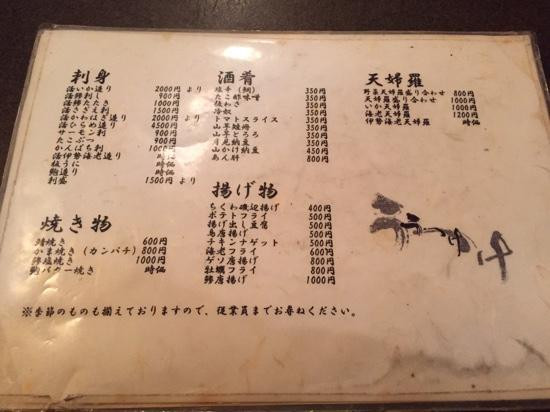 刺身
活いか造り 2000円より
活鯵刺し 900円
活鯵たたき 1000円
活さざえ刺 1000円
活かわはぎ造り 2000円より
活ひらめ造り 4500円
サーモン刺 900円
たこぶつ 900円
かんぱち刺 1000円
活伊勢海老造り 時価
板うに 時価
鮑造り 時価
刺盛 1500円より
焼き物
鯖焼き 600円
かま焼き(カンパチ) 800円
鯵塩焼き 1000円
鮑バター焼き 時価
酒肴
塩辛(鯛) 350円
たこ酢味噌 350円
板わさ 350円
トマトスライス 350円
山芋短冊 350円
山芋とろろ 350円
月見納豆 350円
山かけ納豆 450円
あん肝 800円
揚げ物
ちくわ磯辺揚げ 400円
ポテトフライ 500円
揚げ出し豆腐 500円
鳥唐揚げ 500円
チキンナゲット 500円
海老フライ 600円
ゲソ唐揚げ 800円
牡蠣フライ 800円
鯵唐揚げ 1000円
天婦羅
野菜天婦羅盛り合わせ 800円
天婦羅盛り合わせ 1000円
いか天婦羅 1000円
海老天婦羅 1200円
伊勢海老天婦羅 時価
※季節のものも揃えておりますので、従業員までお尋ねください。